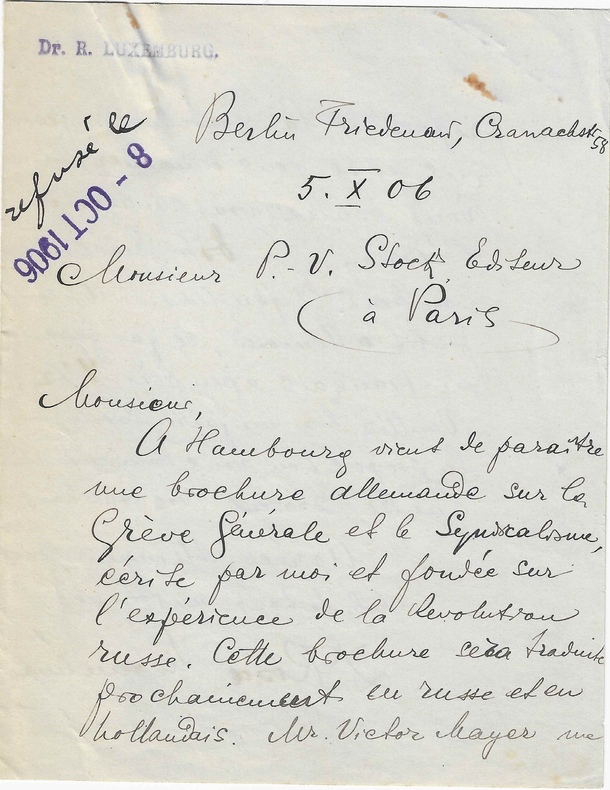 Dr. R. LUXEMBURG.
Berlin Friedenau, Cranachstr 58
refusé le
8 - OCT 1906
5. X 06
Monsieur P.-V. Stock, Editeur
à Paris
Monsieur,
A Hambourg vient de paraître
une brochure allemande sur la
Grève Générale et le Syndicalisme,
écrite par moi et fondée sur
l'expérience de la Revolution
russe. Cette brochure sera traduite
prochainement en russe et en
hollandais. Mr. Victor Mayer me